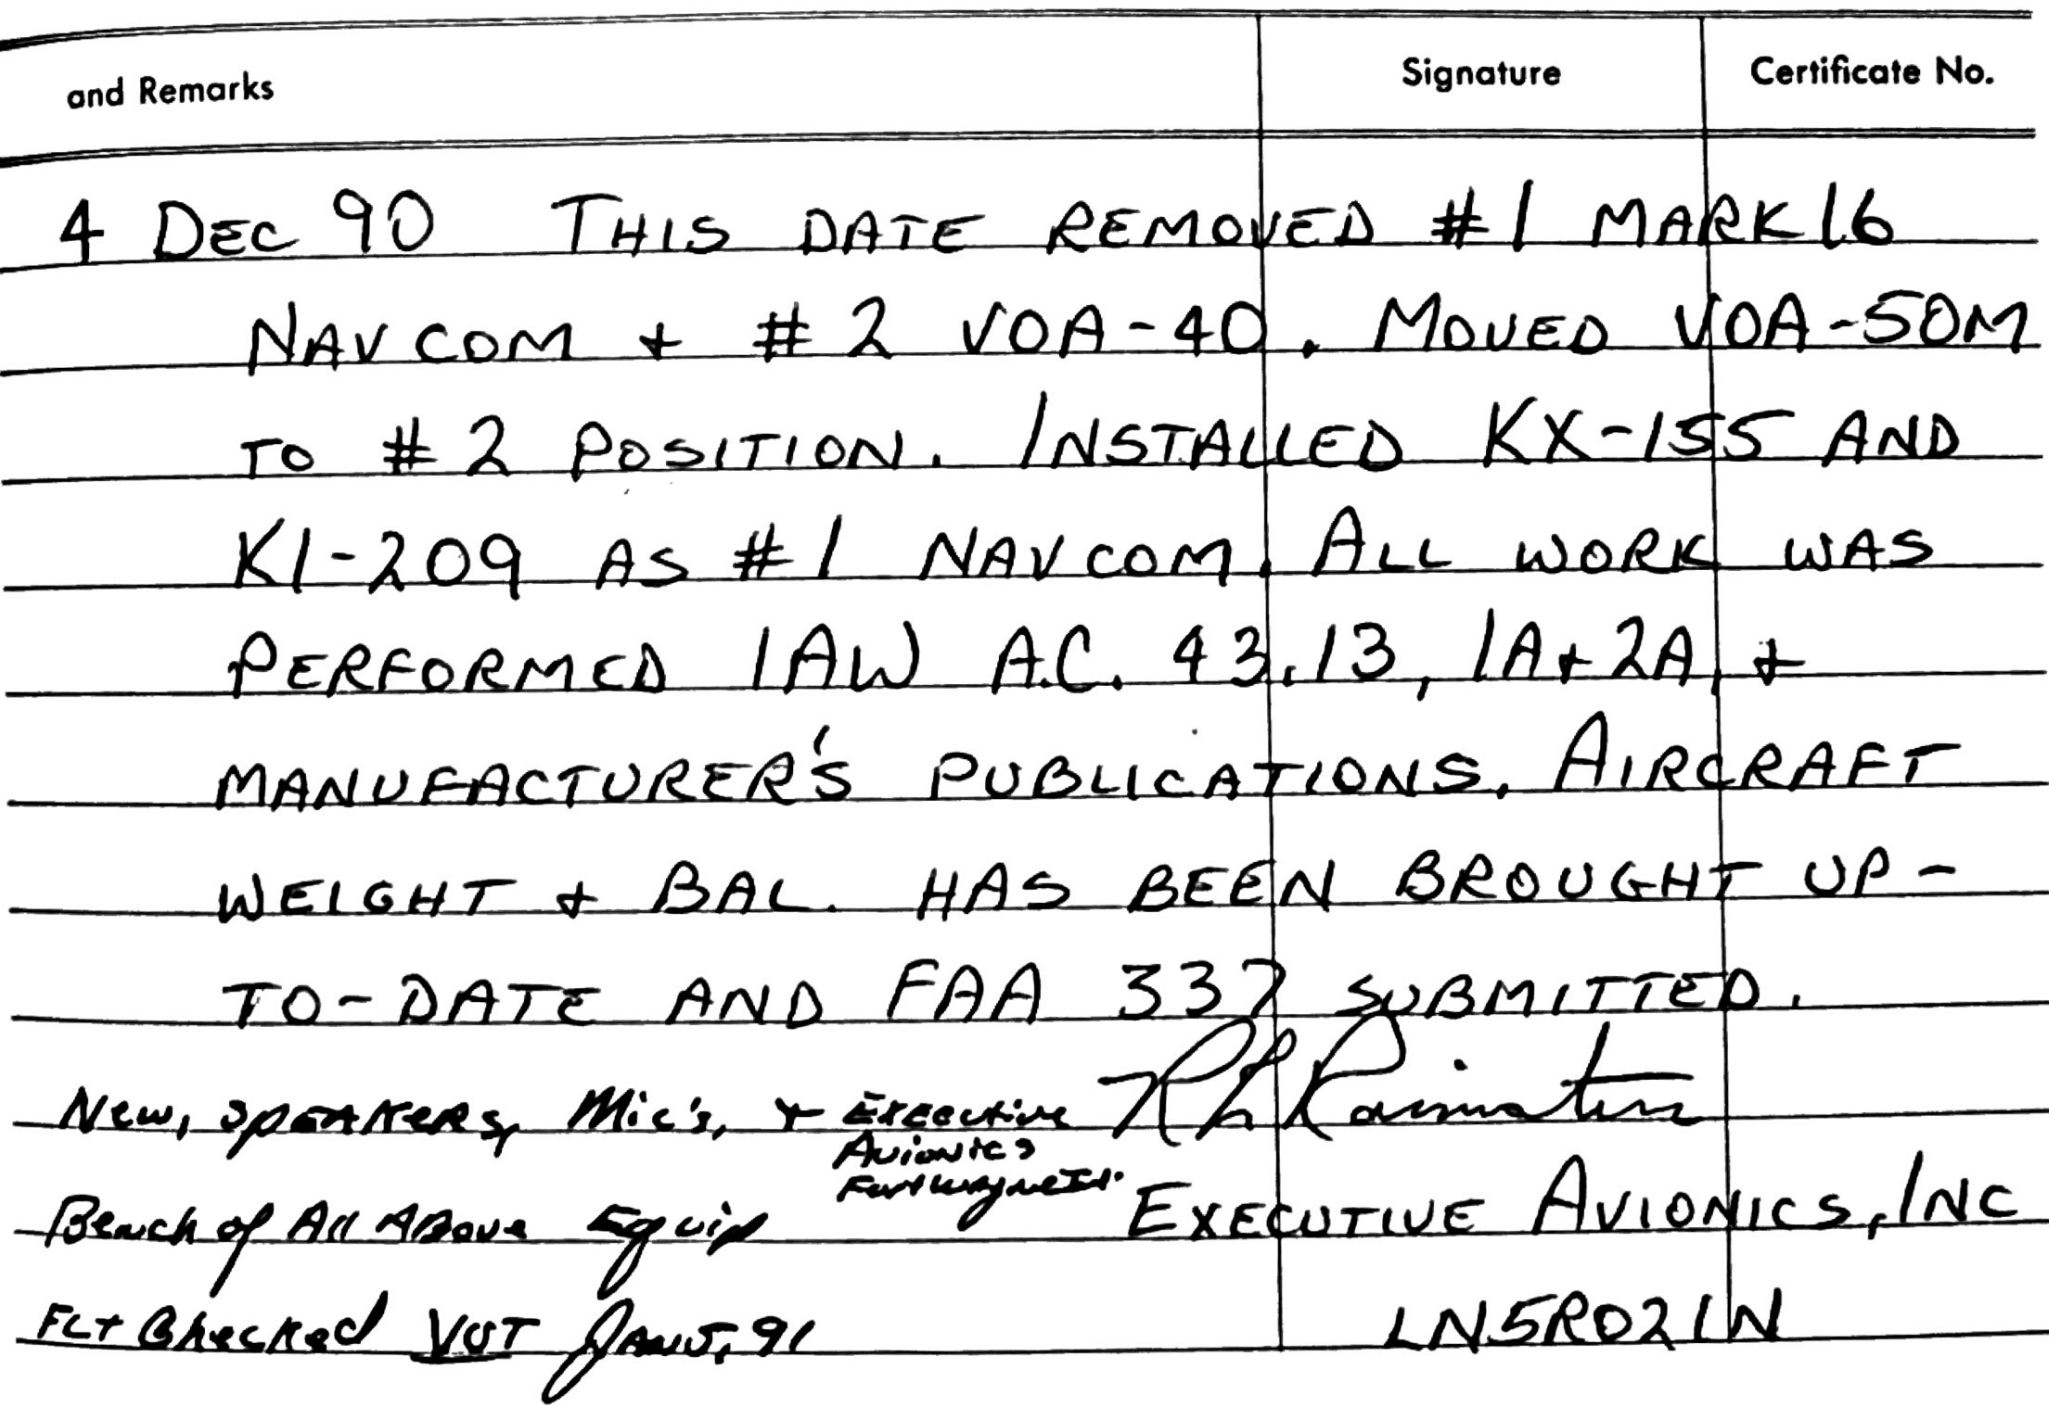 and Remarks Signature Certificate No.
4 DEC 90 THIS DATE REMOVED #1 MARK 16
NAVCOM + #2 VOA-40. MOVED VOA-50M
TO #2 POSITION. INSTALLED KX-155 AND
KI-209 AS #1 NAVCOM. ALL WORK WAS
PERFORMED IAW A.C. 43.13, 1A+2A, +
MANUFACTURER'S PUBLICATIONS. AIRCRAFT
WEIGHT + BAL. HAS BEEN BROUGHT UP-
TO-DATE AND FAA 337 SUBMITTED.
New, SPEAKERS, Mic's, + Executive
Avionics
Fort Wayne
EXECUTIVE AVIONICS, INC
Bench of All Above Equip
Checked JAN 5, 91